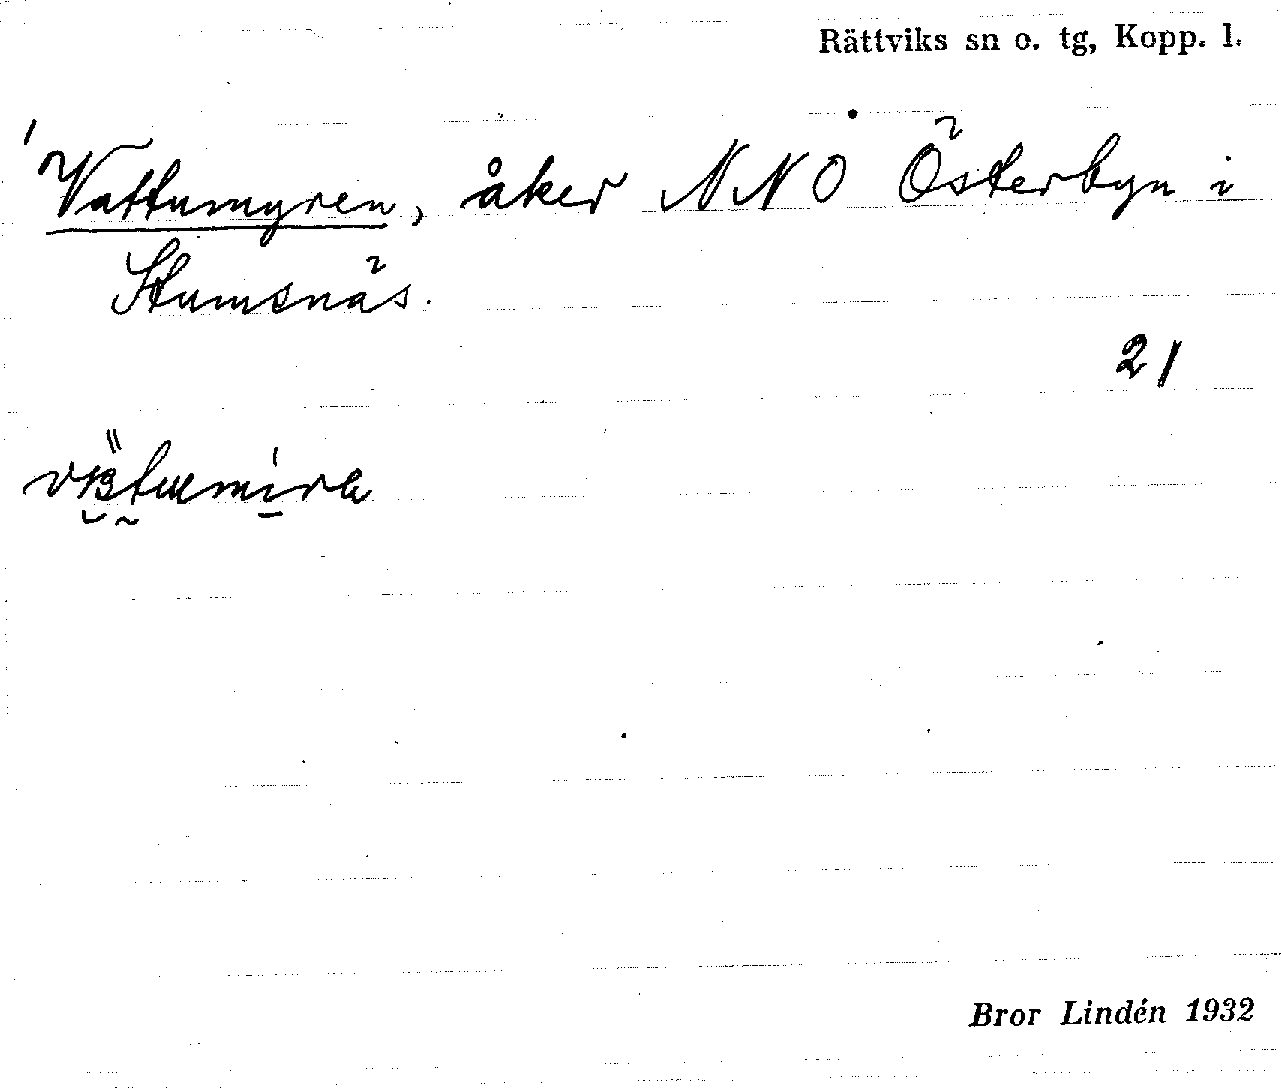 Rättviks sn o. tg, Kopp. l.
Vattumyren, åker NNO Österbyn i
Stumsnäs.
21
Bror Lindén 1932